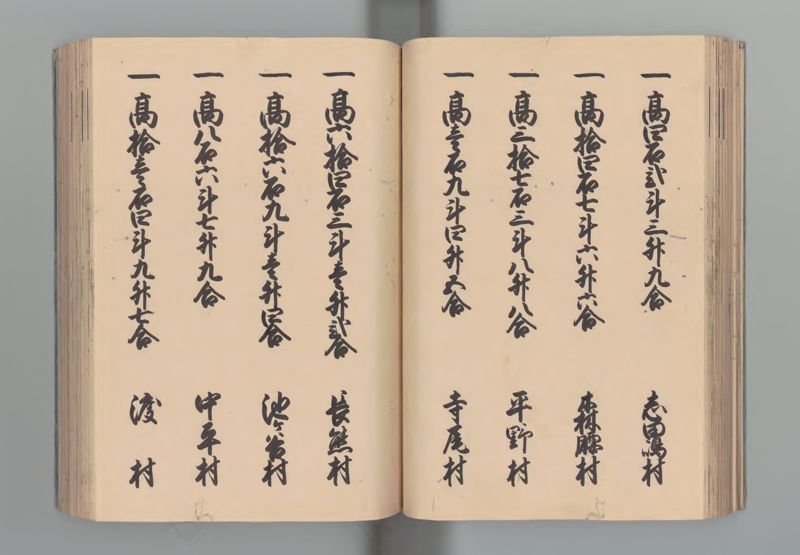 一高四石弐斗三升九合 志田嶌村
一高拾四石七斗六升六合 森腰村
一高三拾七石三斗八升八合 平野村
一高壱石九斗四升五合 寺尾村
一高六拾四石三斗壱升弐合 長熊村
一高拾六石九斗壱升四合 池ヶ谷村
一高八石六斗七升九合 中平村
一高拾壱石四斗九升七合 渡村